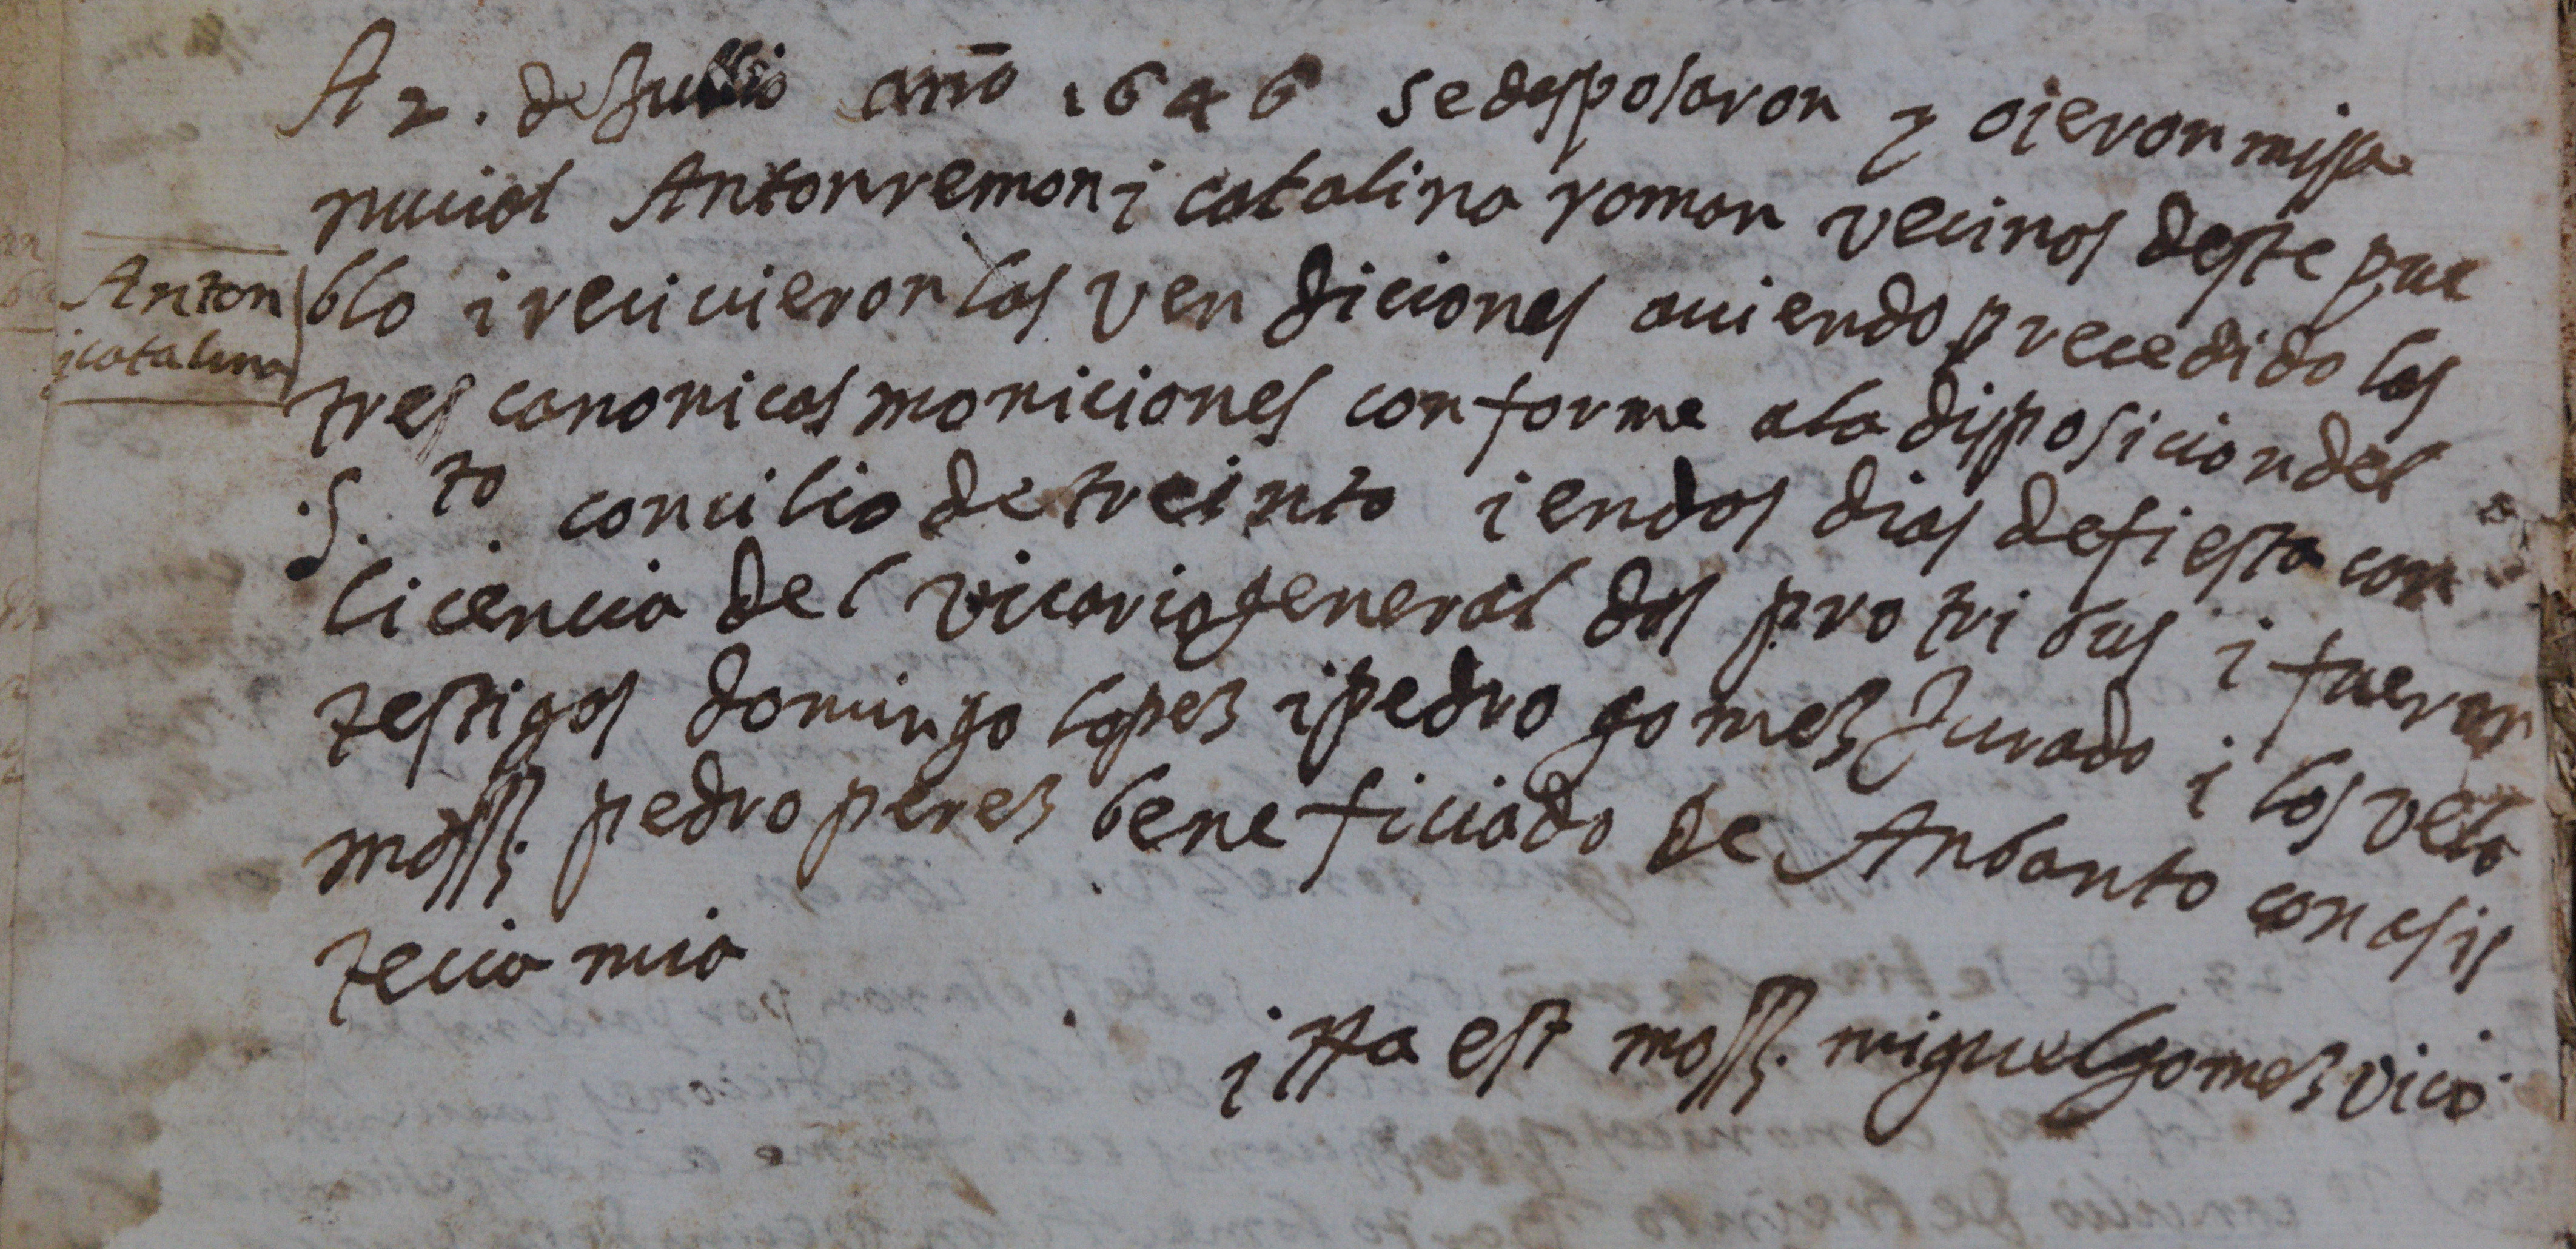 A 2. de Jullio año 1646 se desposaron y oieron missa
nucial Anton remon i catalina roman vecinos deste pue
Anton
i catalina
blo i recicuieron las vendiciones auiendo precedido las
tres canonicas moniciones conforme a la disposicion del
S.to concilio de treinto i en dos dias de fiesta con
licencia del vicario general dos pro tribus i fueron
testigos domingo lopez i pedro gomez Jurado i los velo
moss. pedro perez beneficiado de Anbanto con asis
tecia mia
itta est moss. miguel gomez vico